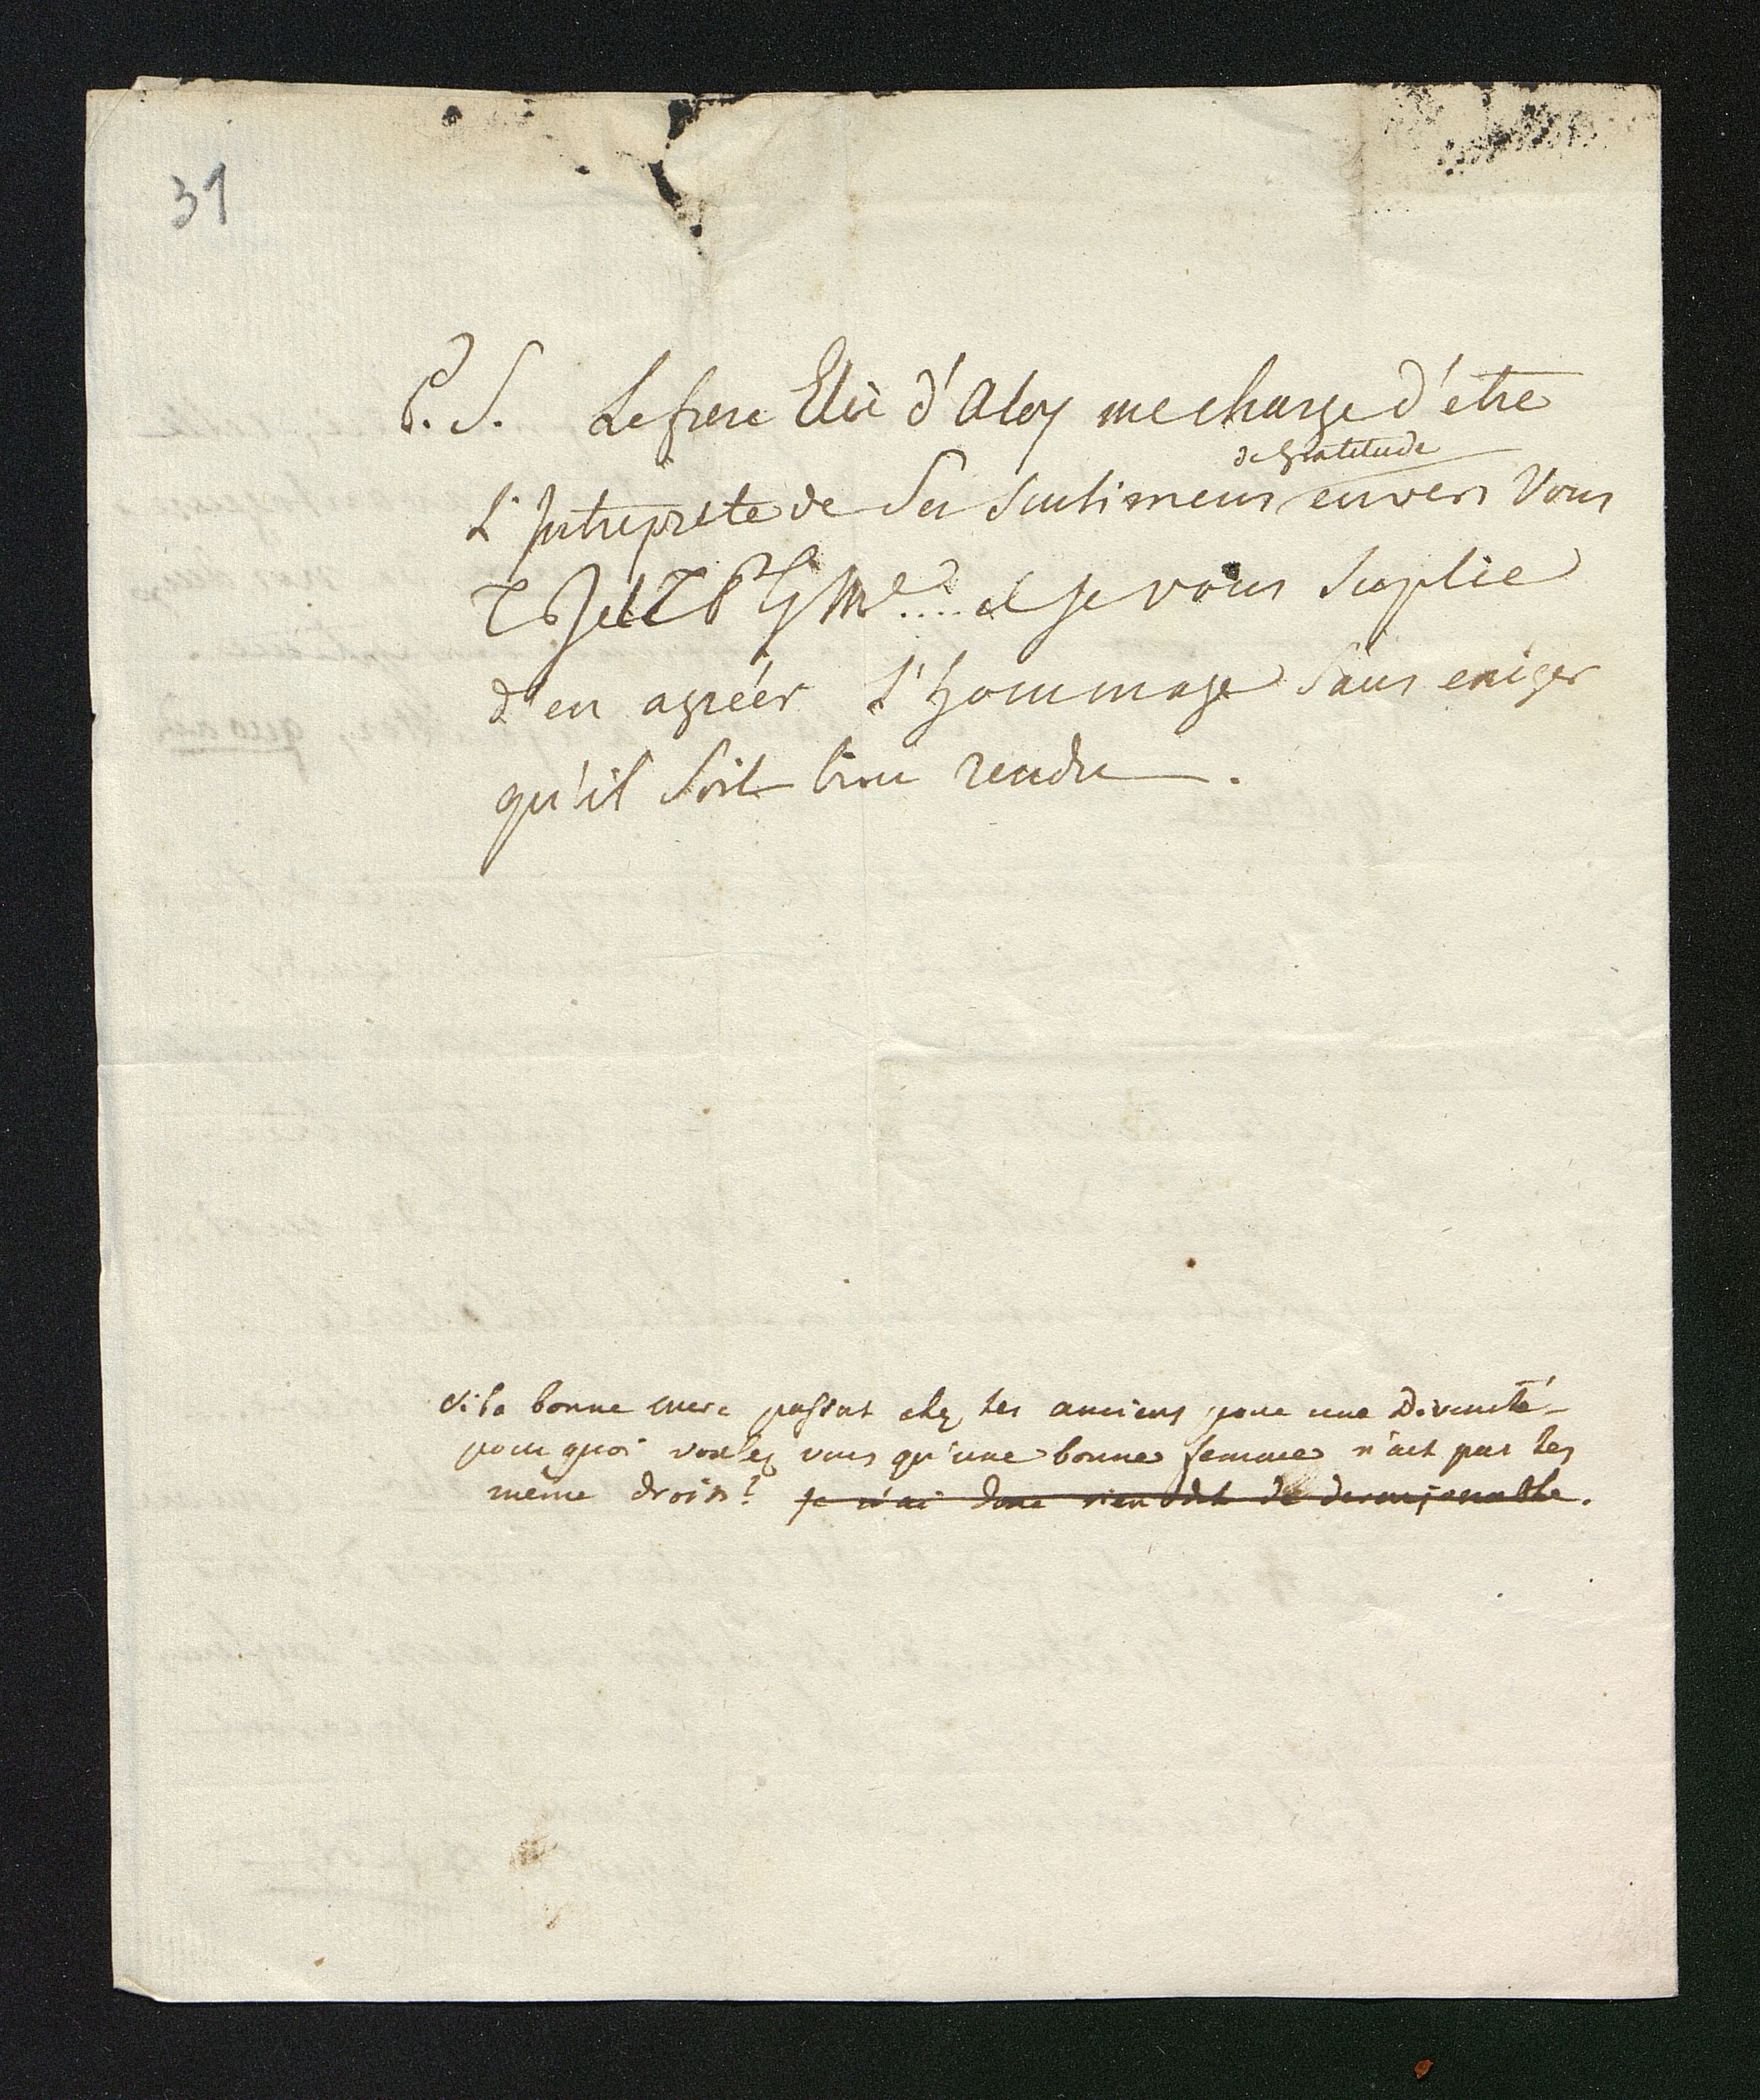 31
P.S. Le frere Elie d'Aloy me charge d'être
de gratitude
L'Intreprete de Ses Sentimens envers Vous
T B et T P G M.... et je vous Suplie
d'en agréér l'hommage Sans exiger
qu'il Soit bien rendu.
Si la bonne mere passat chez les anciens pour une Divinité
pourquoi voulez vous qu'une bonne femme n'ait pas les
même droits? je n'ai donc rien dit de deraisonable.